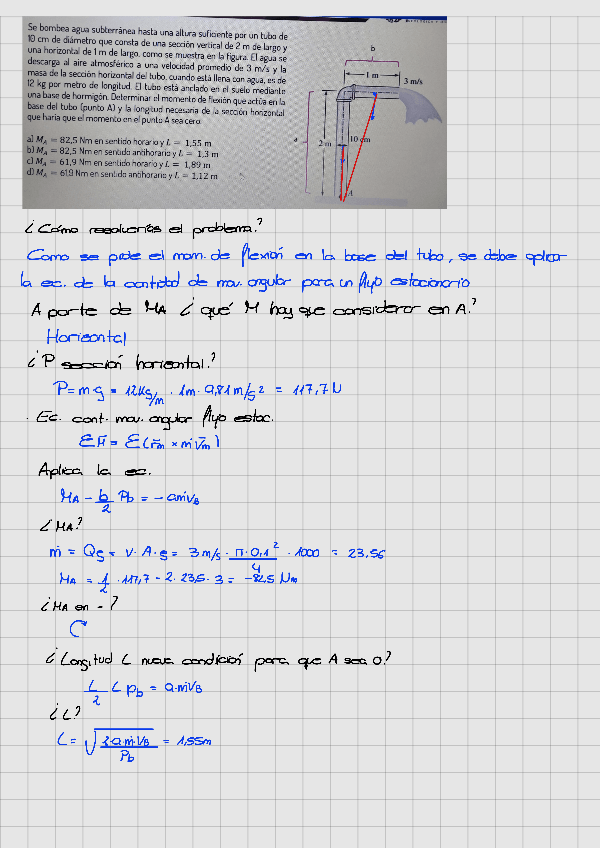 Se bombea agua subterránea hasta una altura suficiente por un tubo de
10 cm de diámetro que consta de una sección vertical de 2 m de largo y
una horizontal de 1 m de largo, como se muestra en la figura. El agua se
descarga al aire atmosférico a una velocidad promedio de 3 m/s y la
masa de la sección horizontal del tubo, cuando está llena con agua, es de
12 kg por metro de longitud. El tubo está anclado en el suelo mediante
una base de hormigón. Determinar el momento de flexión que actúa en la
base del tubo (punto A) y la longitud necesaria de la sección horizontal
que haría que el momento en el punto A sea cero.
a) MA = 82,5 Nm en sentido horario y L = 1,55 m
b) MA = 82,5 Nm en sentido antihorario y L = 1,3 m
c) MA = 61,9 Nm en sentido horario y L = 1,89 m
d) MA = 61,9 Nm en sentido antihorario y L = 1,12 m
b
1 m
3 m/s
a
2 m
10 cm
A
¿Cómo resolverías el problema?
Como se pide el mom. de flexión en la base del tubo, se debe aplicar
la ec. de la cantidad de mov. angular para un flujo estacionario
A parte de MA ¿qué M hay que considerar en A?
Horizontal
¿P sección horizontal?
P = m·g = 12kg/m · 1m · 9,81 m/s2 = 117,7 N
· Ec. cont. mov. angular flujo estac.
ΣM̄ = Σ(r̄m × ṁ V̄m)
Aplica la ec.
MA - b/2 Pb = - aṁVB
¿MA?
ṁ = Qρ = v·A·ρ = 3 m/s · π·0,1²/4 · 1000 = 23,56
MA = 1/2 · 117,7 - 2·23,5·3 = -82,5 Nm
¿MA en -?
¿Longitud L nueva condición para que A sea 0?
L/2 L Pb = a·ṁVB
¿L?
L = √(2·a·ṁ·VB/Pb) = 1,55m